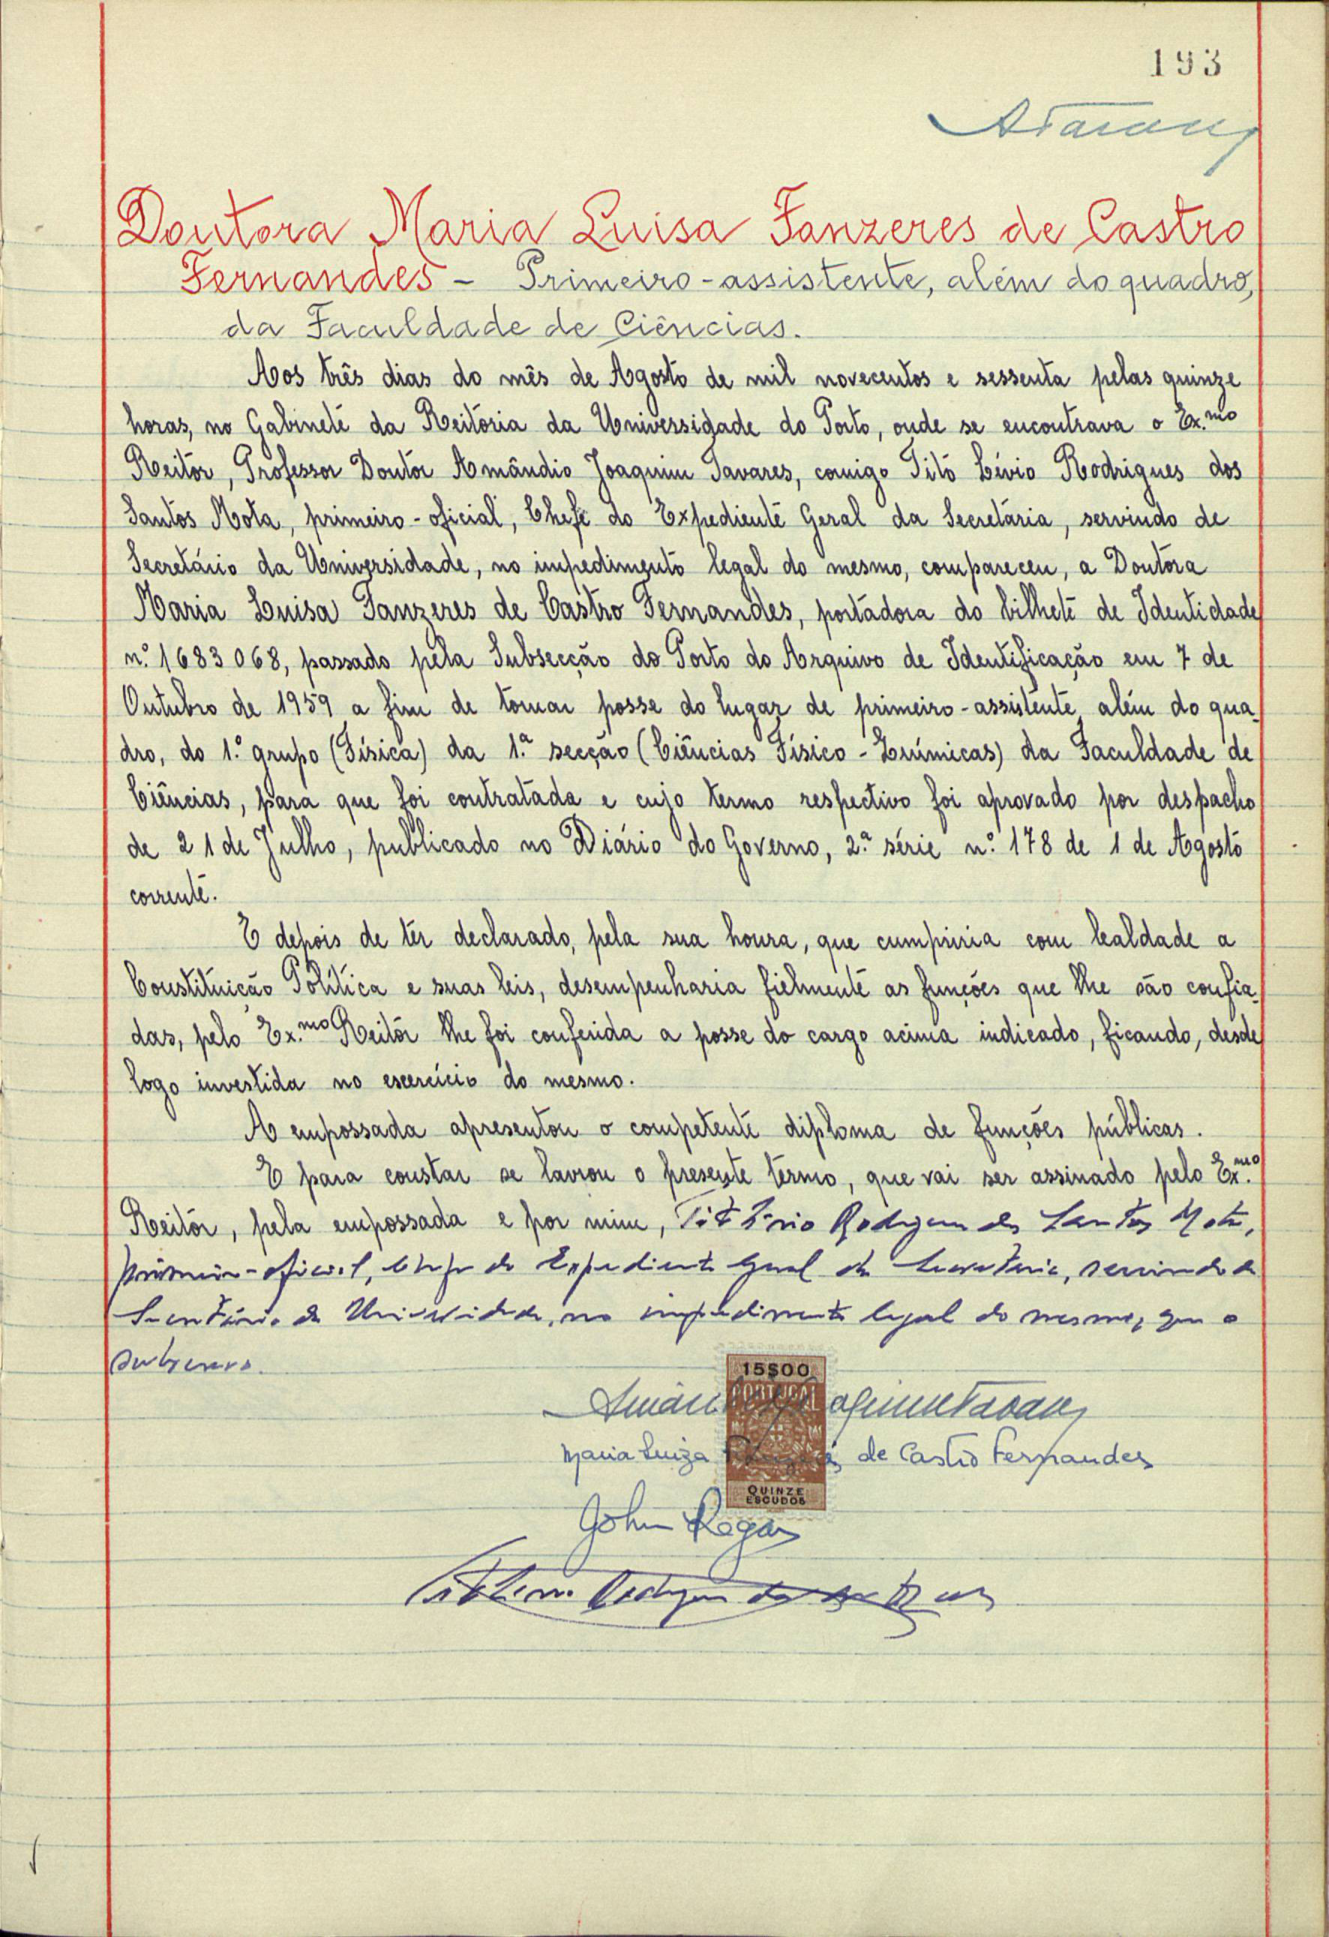 193
ATavares
Doutora Maria Luisa Fanzeres de Castro
Fernandes - Primeiro-assistente, além do quadro,
da Faculdade de Ciências.
Aos três dias do mês de Agosto de mil novecentos e sessenta pelas quinze
horas, no Gabinete da Reitoria da Universidade do Porto, onde se encontrava o Ex.mo
Reitor, Professor Doutor Amândio Joaquim Tavares, comigo Tito Lívio Rodrigues dos
Santos Mota, primeiro-oficial, Chefe do Expediente Geral da Secretaria, servindo de
Secretário da Universidade, no impedimento legal do mesmo, compareceu, a Doutora
Maria Luisa Fanzeres de Castro Fernandes, portadora do bilhete de Identidade
n.º 1683068, passado pela Subsecção do Porto do Arquivo de Identificação em 7 de
Outubro de 1959 a fim de tomar posse do lugar de primeiro-assistente, além do qua-
dro, do 1.º grupo (Física) da 1.ª secção (Ciências Físico-Químicas) da Faculdade de
Ciências, para que foi contratada e cujo termo respectivo foi aprovado por despacho
de 21 de Julho, publicado no Diário do Governo, 2.ª série n.º 178 de 1 de Agosto
corrente.
E depois de ter declarado, pela sua honra, que cumpriria com lealdade a
Constituição Política e suas leis, desempenharia fielmente as funções que lhe são confia-
das, pelo Ex.mo Reitor lhe foi conferida a posse do cargo acima indicado, ficando, desde
logo investida no exercício do mesmo.
A empossada apresentou o competente diploma de funções públicas.
E para constar se lavrou o presente termo, que vai ser assinado pelo Ex.mo
Reitor, pela empossada e por mim, Tito Lívio Rodrigues dos Santos Mota,
primeiro-oficial, Chefe do Expediente Geral da Secretaria, servindo de
Secretário da Universidade, no impedimento legal do mesmo, que o
subscrevo.
15$00
PORTUGAL
Amândio Joaquim Tavares
Maria Luiza Fanzeres de Castro Fernandes
QUINZE
ESCUDOS
John Rogan
Tito Lívio Rodrigues dos Santos Mota